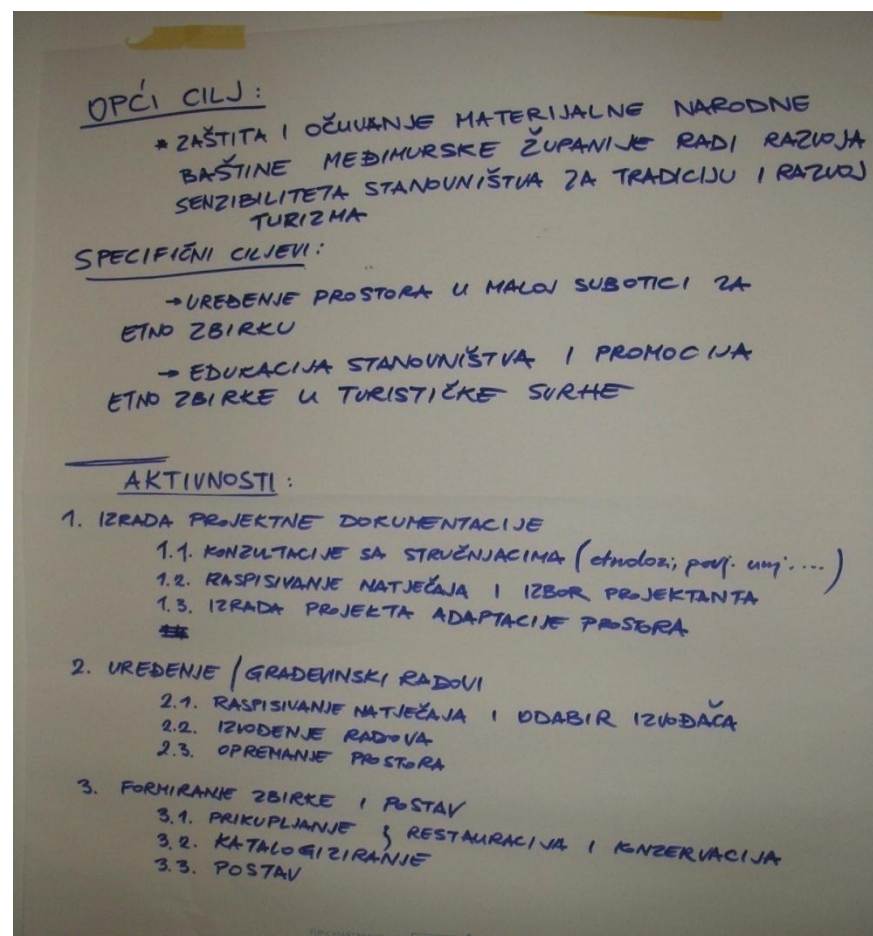 OPĆI CILJ:
* ZAŠTITA I OČUVANJE MATERIJALNE NARODNE
BAŠTINE MEĐIMURSKE ŽUPANIJE RADI RAZVOJA
SENZIBILITETA STANOVNIŠTVA ZA TRADICIJU I RAZVOJ
TURIZMA
SPECIFIČNI CILJEVI:
→ UREĐENJE PROSTORA U MALOJ SUBOTICI ZA
ETNO ZBIRKU
→ EDUKACIJA STANOVNIŠTVA I PROMOCIJA
ETNO ZBIRKE U TURISTIČKE SVRHE
AKTIVNOSTI:
1. IZRADA PROJEKTNE DOKUMENTACIJE
1.1. KONZULTACIJE SA STRUČNJACIMA (etnolozi, povj. umj. ...)
1.2. RASPISIVANJE NATJEČAJA I IZBOR PROJEKTANTA
1.3. IZRADA PROJEKTA ADAPTACIJE PROSTORA
2. UREĐENJE / GRAĐEVINSKI RADOVI
2.1. RASPISIVANJE NATJEČAJA I ODABIR IZVOĐAČA
2.2. IZVOĐENJE RADOVA
2.3. OPREMANJE PROSTORA
3. FORMIRANJE ZBIRKE I POSTAV
3.1. PRIKUPLJANJE } RESTAURACIJA I KONZERVACIJA
3.2. KATALOGIZIRANJE
3.3. POSTAV